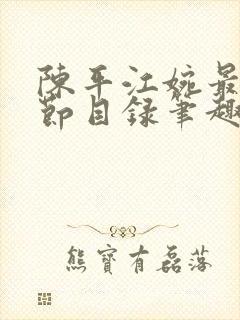 陳平江婉最
節目錄筆趣
熊寶有磊落